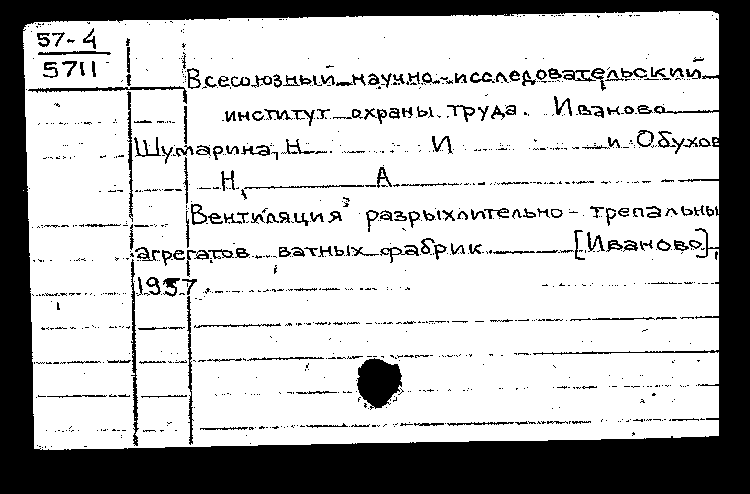 57-4
5711
Всесоюзный научно-исследовательский
институт охраны труда. Иваново
Шумарина, Н И и Обухов
Н, А
Вентиляция разрыхлительно-трепальны
агрегатов ватных фабрик [Иваново],
1957.